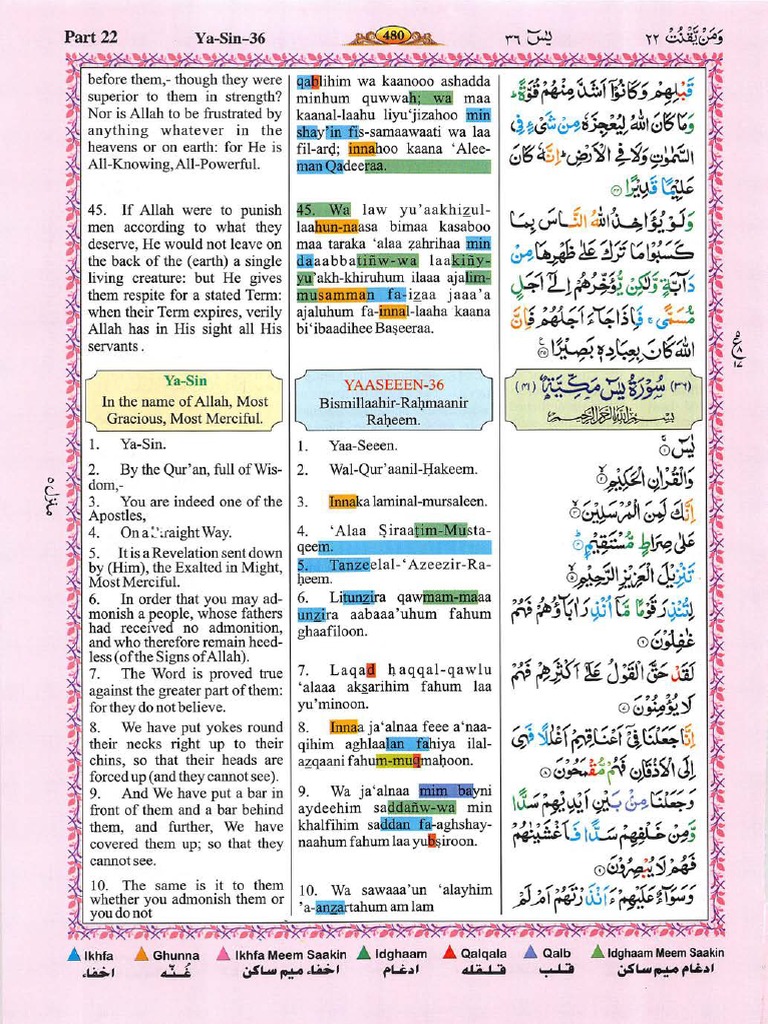 Part 22
Ya-Sin-36
480
يٰسٓ ٣٦
وَمَنْ يَّقْنُتْ ٢٢
before them,- though they were
superior to them in strength?
Nor is Allah to be frustrated by
anything whatever in the
heavens or on earth: for He is
All-Knowing, All-Powerful.
45. If Allah were to punish
men according to what they
deserve, He would not leave on
the back of the (earth) a single
living creature: but He gives
them respite for a stated Term:
when their Term expires, verily
Allah has in His sight all His
servants .
Ya-Sin
In the name of Allah, Most
Gracious, Most Merciful.
1. Ya-Sin.
2. By the Qur'an, full of Wis-
dom,-
3. You are indeed one of the
Apostles,
4. On a Straight Way.
5. It is a Revelation sent down
by (Him), the Exalted in Might,
Most Merciful.
6. In order that you may ad-
monish a people, whose fathers
had received no admonition,
and who therefore remain heed-
less (of the Signs of Allah).
7. The Word is proved true
against the greater part of them:
for they do not believe.
8. We have put yokes round
their necks right up to their
chins, so that their heads are
forced up (and they cannot see).
9. And We have put a bar in
front of them and a bar behind
them, and further, We have
covered them up; so that they
cannot see.
10. The same is it to them
whether you admonish them or
you do not
qablihim wa kaanooo ashadda
minhum quwwah; wa maa
kaanal-laahu liyu'jizahoo min
shay'in fis-samaawaati wa laa
fil-arḍ; innahoo kaana 'Alee-
man Qadeeraa.
45. Wa law yu'aakhiẕul-
laahun-naasa bimaa kasaboo
maa taraka 'alaa ẓahrihaa min
daaabbatiñw-wa laakiñy-
yu'akh-khiruhum ilaaa ajalim-
musamman fa-iẕaa jaaa'a
ajaluhum fa-innal-laaha kaana
bi'ibaadihee Baṣeeraa.
YAASEEEN-36
Bismillaahir-Raḥmaanir
Raḥeem.
1. Yaa-Seeen.
2. Wal-Qur'aanil-Ḥakeem.
3. Innaka laminal-mursaleen.
4. 'Alaa Ṣiraaṭim-Musta-
qeem.
5. Tanzeelal-'Azeezir-Ra-
ḥeem.
6. Litunẕira qawmam-maaa
unẕira aabaaa'uhum fahum
ghaafiloon.
7. Laqad ḥaqqal-qawlu
'alaaa aksarihim fahum laa
yu'minoon.
8. Innaa ja'alnaa feee a'naa-
qihim aghlaalan fahiya ilal-
aẕqaani fahum-muqmaḥoon.
9. Wa ja'alnaa mim bayni
aydeehim saddañw-wa min
khalfihim saddan fa-aghshay-
naahum fahum laa yubṣiroon.
10. Wa sawaaa'un 'alayhim
'a-anẕartahum am lam
قَبْلِهِمْ وَكَانُوْٓا اَشَدَّ مِنْهُمْ قُوَّةً ؕ
وَمَا كَانَ اللّٰهُ لِيُعْجِزَهٗ مِنْ شَیْءٍ فِی
السَّمٰوٰتِ وَلَا فِی الْاَرْضِ ؕ اِنَّهٗ كَانَ
عَلِيْمًا قَدِيْرًا ﴿٤٤﴾
وَلَوْ يُؤَاخِذُ اللّٰهُ النَّاسَ بِمَا
كَسَبُوْا مَا تَرَكَ عَلٰى ظَهْرِهَا مِنْ
دَآبَّةٍ وَّلٰكِنْ يُّؤَخِّرُهُمْ اِلٰٓى اَجَلٍ
مُّسَمًّى ۚ فَاِذَا جَآءَ اَجَلُهُمْ فَاِنَّ
اللّٰهَ كَانَ بِعِبَادِهٖ بَصِيْرًا ﴿٤٥﴾
(٣٦) سُوْرَةُ يٰسٓ مَكِّيَّةٌ (٤١)
بِسْمِ اللّٰهِ الرَّحْمٰنِ الرَّحِيْمِ
يٰسٓ ﴿١﴾
وَالْقُرْاٰنِ الْحَكِيْمِ ﴿٢﴾
اِنَّكَ لَمِنَ الْمُرْسَلِيْنَ ﴿٣﴾
عَلٰى صِرَاطٍ مُّسْتَقِيْمٍ ﴿٤﴾
تَنْزِيْلَ الْعَزِيْزِ الرَّحِيْمِ ﴿٥﴾
لِتُنْذِرَ قَوْمًا مَّآ اُنْذِرَ اٰبَآؤُهُمْ فَهُمْ
غٰفِلُوْنَ ﴿٦﴾
لَقَدْ حَقَّ الْقَوْلُ عَلٰٓى اَكْثَرِهِمْ فَهُمْ
لَا يُؤْمِنُوْنَ ﴿٧﴾
اِنَّا جَعَلْنَا فِیْٓ اَعْنَاقِهِمْ اَغْلٰلًا فَهِیَ
اِلَى الْاَذْقَانِ فَهُمْ مُّقْمَحُوْنَ ﴿٨﴾
وَجَعَلْنَا مِنْۢ بَيْنِ اَيْدِيْهِمْ سَدًّا
وَّمِنْ خَلْفِهِمْ سَدًّا فَاَغْشَيْنٰهُمْ
فَهُمْ لَا يُبْصِرُوْنَ ﴿٩﴾
وَسَوَآءٌ عَلَيْهِمْ ءَاَنْذَرْتَهُمْ اَمْ لَمْ
منزل ٥
Ikhfa
Ghunna
Ikhfa Meem Saakin
Idghaam
Qalqala
Qalb
Idghaam Meem Saakin
اخفاء
غُنّه
اخفاء ميم ساكن
ادغام
قلقله
قلب
ادغام ميم ساكن